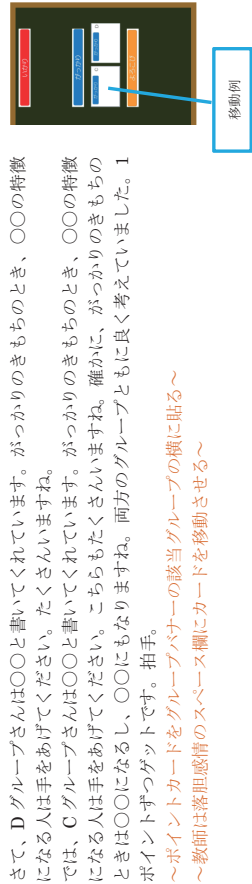 さて、D グループさんは○○と書いてくれています。がっかりのきもちのとき、○○の特徴
になる人は手をあげてください。たくさんいますね。
では、C グループさんは○○と書いてくれています。がっかりのきもちのとき、○○の特徴
になる人は手をあげてください。こちらもたくさんいますね。確かに、がっかりのきもちの
ときは○○になるし、○○にもなりますね。両方のグループともに良く考えていました。1
ポイントずつゲットです。拍手。
～ポイントカードをグループバナーの該当グループの横に貼る～
～教師は落胆感情のスペース欄にカードを移動させる～
いかり
がっかり
C
D
移動例